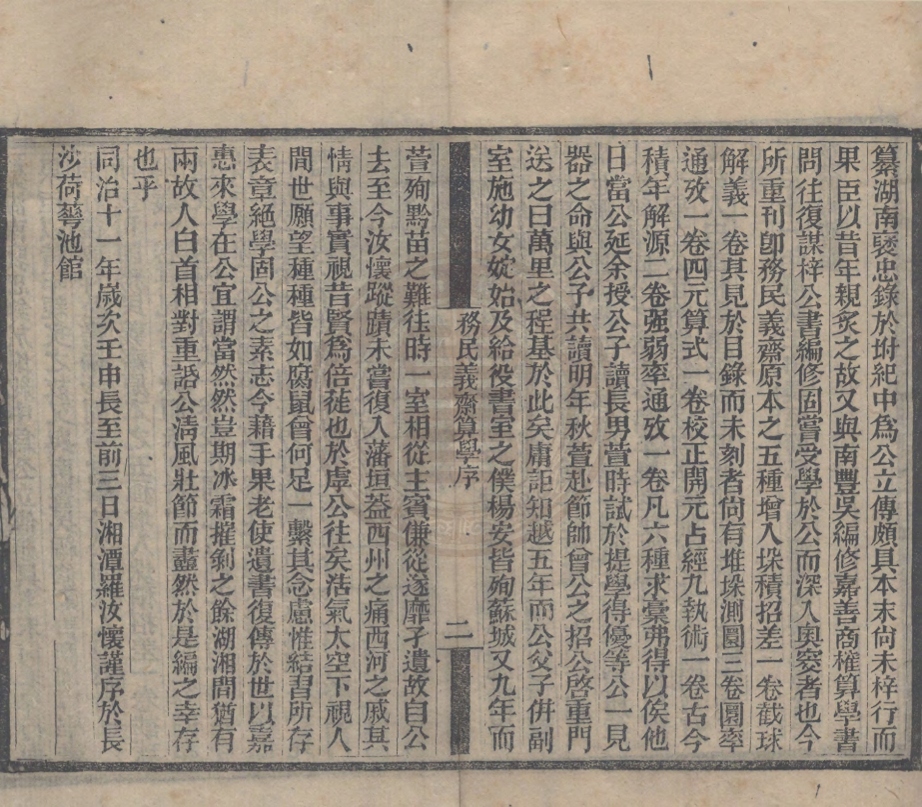 纂湖南襃忠錄於坿紀中爲公立傳頗具本末尙未梓行而
果臣以昔年親炙之故又與南豐吳編修嘉善商榷算學書
問往復謀梓公書編修固嘗受學於公而深入奧窔者也今
所重刊卽務民義齋原本之五種增入垛積招差一卷截球
解義一卷其見於目錄而未刻者尙有堆垛測圜三卷圜率
通攷一卷四元算式一卷校正開元占經九執術一卷古今
積年解源二卷强弱率通攷一卷凡六種求稾弗得以俟他
日當公延余授公子讀長男萱時試於提學得優等公一見
器之命與公子共讀明年秋萱赴節帥曾公之招公啓重門
送之曰萬里之程基於此矣庸詎知越五年而公父子併副
室施幼女媫始及給役書室之僕楊安皆殉蘇城又九年而
務民義齋算學序
二
萱殉黔苗之難往時一室相從主賓傔從遂靡孑遺故自公
去至今汝懷蹤蹟未嘗復入藩垣葢西州之痛西河之戚其
情與事實視昔賢爲倍蓰也於虖公往矣浩氣太空下視人
間世願望種種皆如腐鼠曾何足一繫其念慮惟結習所存
表章絕學固公之素志今藉手果老使遺書復傳於世以嘉
惠來學在公宜謂當然然豈期冰霜摧剝之餘湖湘間猶有
兩故人白首相對重話公淸風壯節而衋然於是編之幸存
也乎
同治十一年歲次壬申長至前三日湘潭羅汝懷謹序於長
沙荷蕚池館